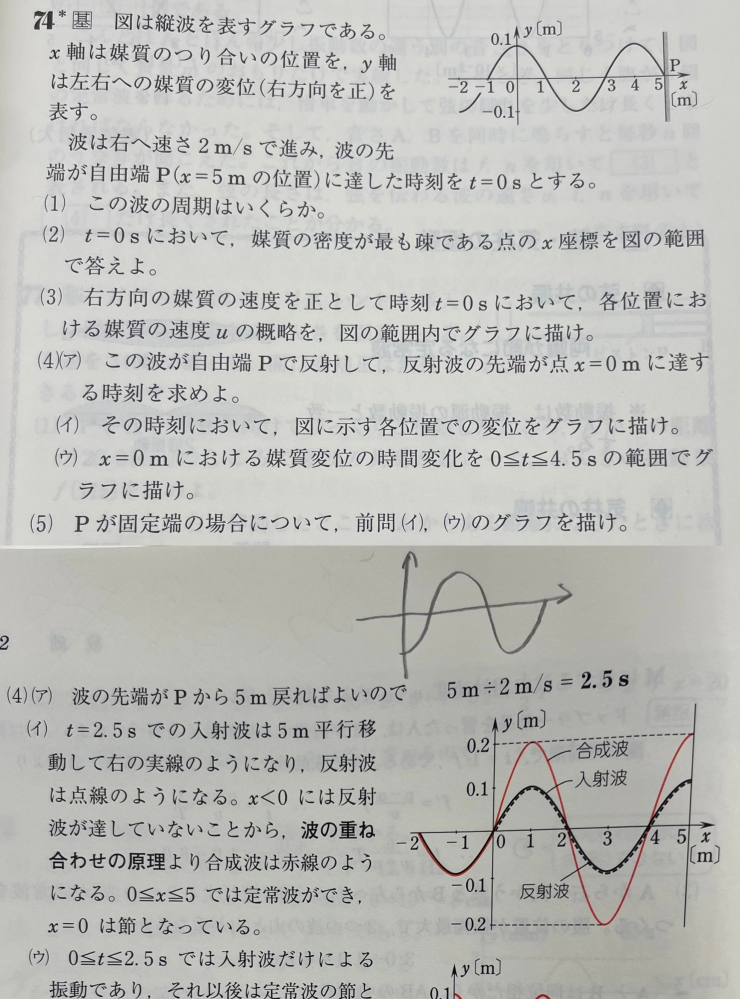 74* 基 図は縦波を表すグラフである。
x 軸は媒質のつり合いの位置を，y 軸
は左右への媒質の変位(右方向を正)を
表す。
波は右へ速さ 2 m/s で進み，波の先
端が自由端 P(x=5 m の位置)に達した時刻を t=0 s とする。
y〔m〕
0.1
P
−2 −1 0 1 2 3 4 5 x
〔m〕
−0.1
(1) この波の周期はいくらか。
(2) t=0 s において，媒質の密度が最も疎である点の x 座標を図の範囲
で答えよ。
(3) 右方向の媒質の速度を正として時刻 t=0 s において，各位置にお
ける媒質の速度 u の概略を，図の範囲内でグラフに描け。
(4)(ア) この波が自由端 P で反射して，反射波の先端が点 x=0 m に達す
る時刻を求めよ。
(イ) その時刻において，図に示す各位置での変位をグラフに描け。
(ウ) x=0 m における媒質変位の時間変化を 0≦t≦4.5 s の範囲でグ
ラフに描け。
(5) P が固定端の場合について，前問(イ)，(ウ)のグラフを描け。
2
(4)(ア) 波の先端が P から 5 m 戻ればよいので 5 m÷2 m/s = 2.5 s
(イ) t=2.5 s での入射波は 5 m 平行移
動して右の実線のようになり，反射波
は点線のようになる。x<0 には反射
波が達していないことから，波の重ね
合わせの原理より合成波は赤線のよう
になる。0≦x≦5 では定常波ができ，
x=0 は節となっている。
y〔m〕
0.2
合成波
入射波
0.1
−2 −1 0 1 2 3 4 5 x
〔m〕
−0.1
反射波
−0.2
(ウ) 0≦t≦2.5 s では入射波だけによる
振動であり，それ以後は定常波の節と
y〔m〕
0.1